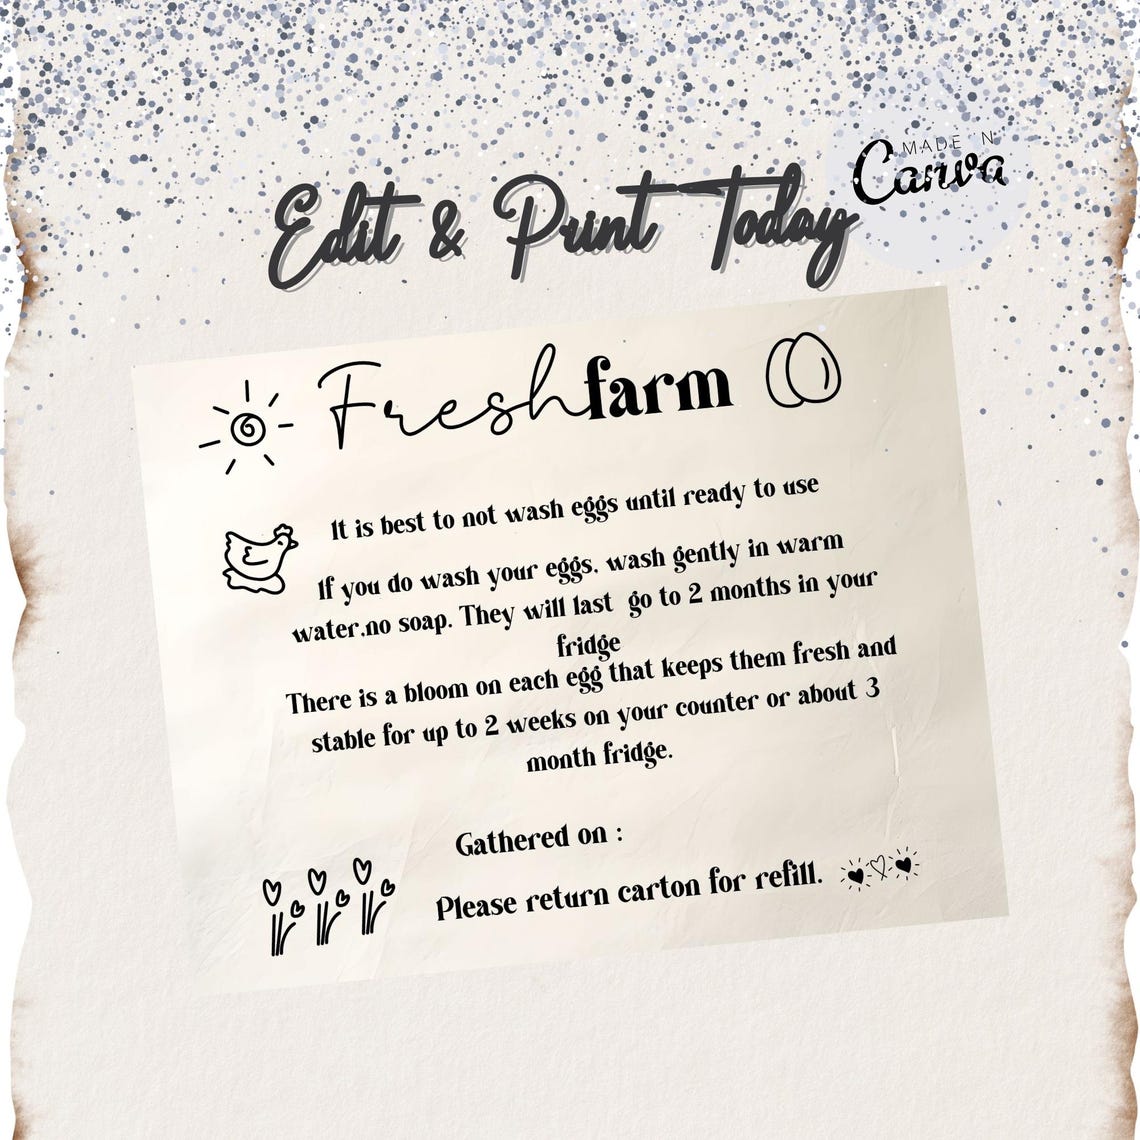 MADE IN
Canva
Edit & Print Today
Fresh farm
It is best to not wash eggs until ready to use
If you do wash your eggs. wash gently in warm
water.no soap. They will last go to 2 months in your
fridge
There is a bloom on each egg that keeps them fresh and
stable for up to 2 weeks on your counter or about 3
month fridge.
Gathered on :
Please return carton for refill.